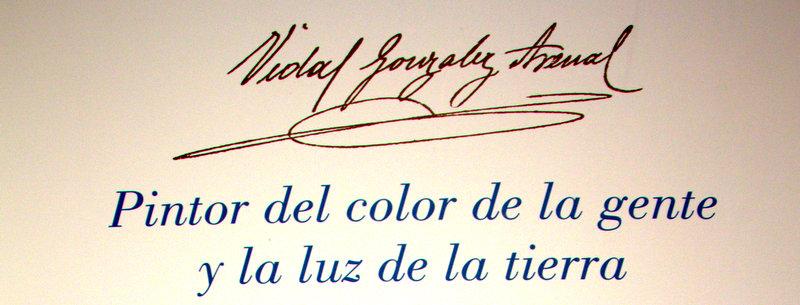 Vidal Gonzalez Arenal
Pintor del color de la gente
y la luz de la tierra